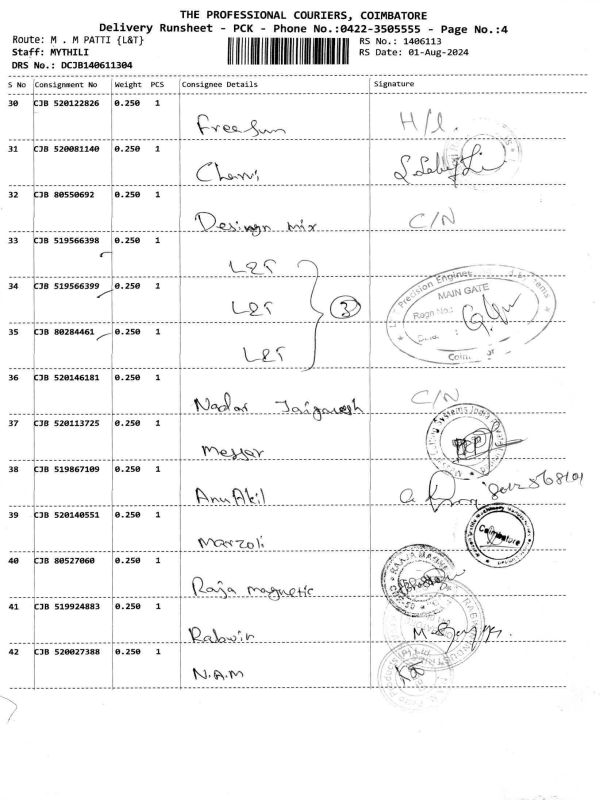 THE PROFESSIONAL COURIERS, COIMBATORE
Delivery Runsheet - PCK - Phone No.:0422-3505555 - Page No.:4
Route: M . M PATTI {L&T}
RS No.: 1406113
Staff: MYTHILI
RS Date: 01-Aug-2024
DRS No.: DCJB140611304
S No Consignment No Weight PCS Consignee Details Signature
30 CJB 520122826 0.250 1
Freesun H/L.
31 CJB 520081140 0.250 1
32 CJB 80550692 0.250 1
Design mix C/N
33 CJB 519566398 0.250 1
L&T
34 CJB 519566399 0.250 1
L&T 3
Precision Engineering
MAIN GATE
Regn No.:
35 CJB 80284461 0.250 1
L&T
36 CJB 520146181 0.250 1
Nadar C/N
37 CJB 520113725 0.250 1
Messar
38 CJB 519867109 0.250 1
Anu Akil
39 CJB 520140551 0.250 1
Marzoli
Coimbatore
40 CJB 80527060 0.250 1
Raja magnetic
41 CJB 519924883 0.250 1
42 CJB 520027388 0.250 1
N.A.M